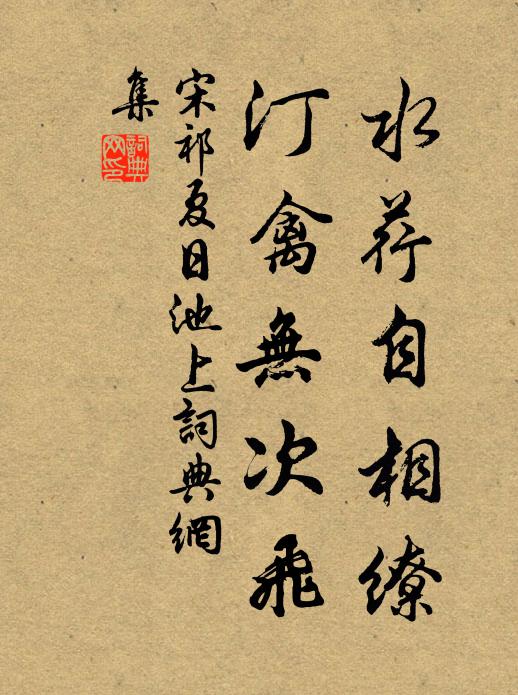 水荇自相繚
汀禽無次飛
宋祁夏日池上詞典網
集
詞典網印